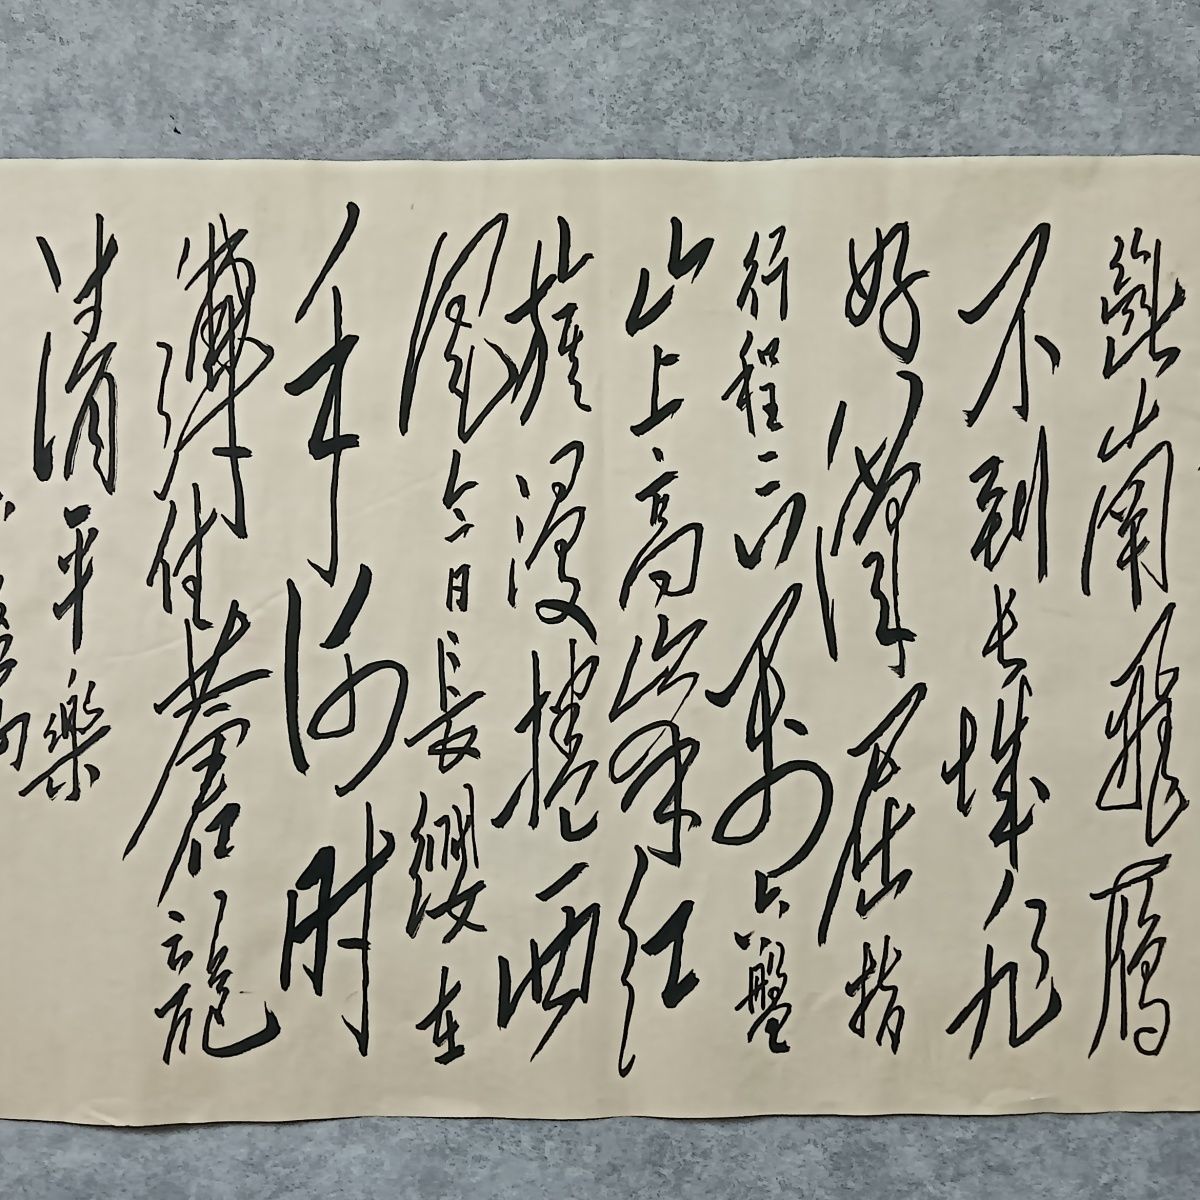 斷南飛雁
不到长城非
好漢屈指
行程二万六盤
山上高峰红
旗漫捲西
風今日長纓在
手何时
縛住蒼龍
清平樂